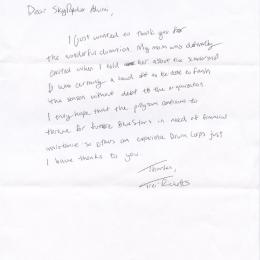 Dear Sky Ryder Alumni,
I just wanted to thank you for
the wonderful donation. My mom was definitely
excited when I told her about the scholarship
It was certainly a load off to be able to finish
the season without debt to the organization.
I only hope that the program continues to
thrive for future BlueStars in need of financial
assistance so others can experience Drum Corps just
I have thanks to you.
Thanks,
Trei Ricketts